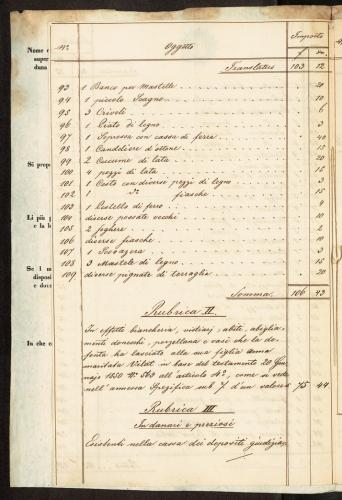 Nome e
super
dana
Si prop
Li più p
e la b
Se i m
disposi
e docu
In che c
No. Oggetto Importo
f. Xni
Translatus 103 12
93 1 Banco per Mastelle 20
94 1 piccolo Scagno 10
95 3 Crivoli 6
96 1 Piato di legno 3
97 1 Sopressa con cassa di ferro 40
98 1 Candeliere d'ottone 15
99 2 Cuccume di lata 20
100 4 pezzi di lata 15
101 1 Cesto con diversi pezzi di legno 3
102 1 do. fiasche 15
103 1 Rastello di ferro 4
104 diverse possate vecchi 10
105 2 foghere 2
106 diverse fiasche 3
107 1 Scovazera
108 3 Mastele di legno 15
109 diverse pignate di terraglia 20
Somma 106 43
Rubrica II.
In effetti biancheria, vestiarj, abiti, abiglia-
menti doneschi, porzellana e vasi che la de-
fonta ha lasciato alla sua figlia Anna
maritata Vilat in base del testamento 20 Gen-
najo 1850 No. 563 all'articolo 4o, come si vede
nell'annessa Spezifica sub 7 d'un valore di 75 44
Rubrica III
In danari e preziosi
Esistenti nella cassa dei depositi giudiziali